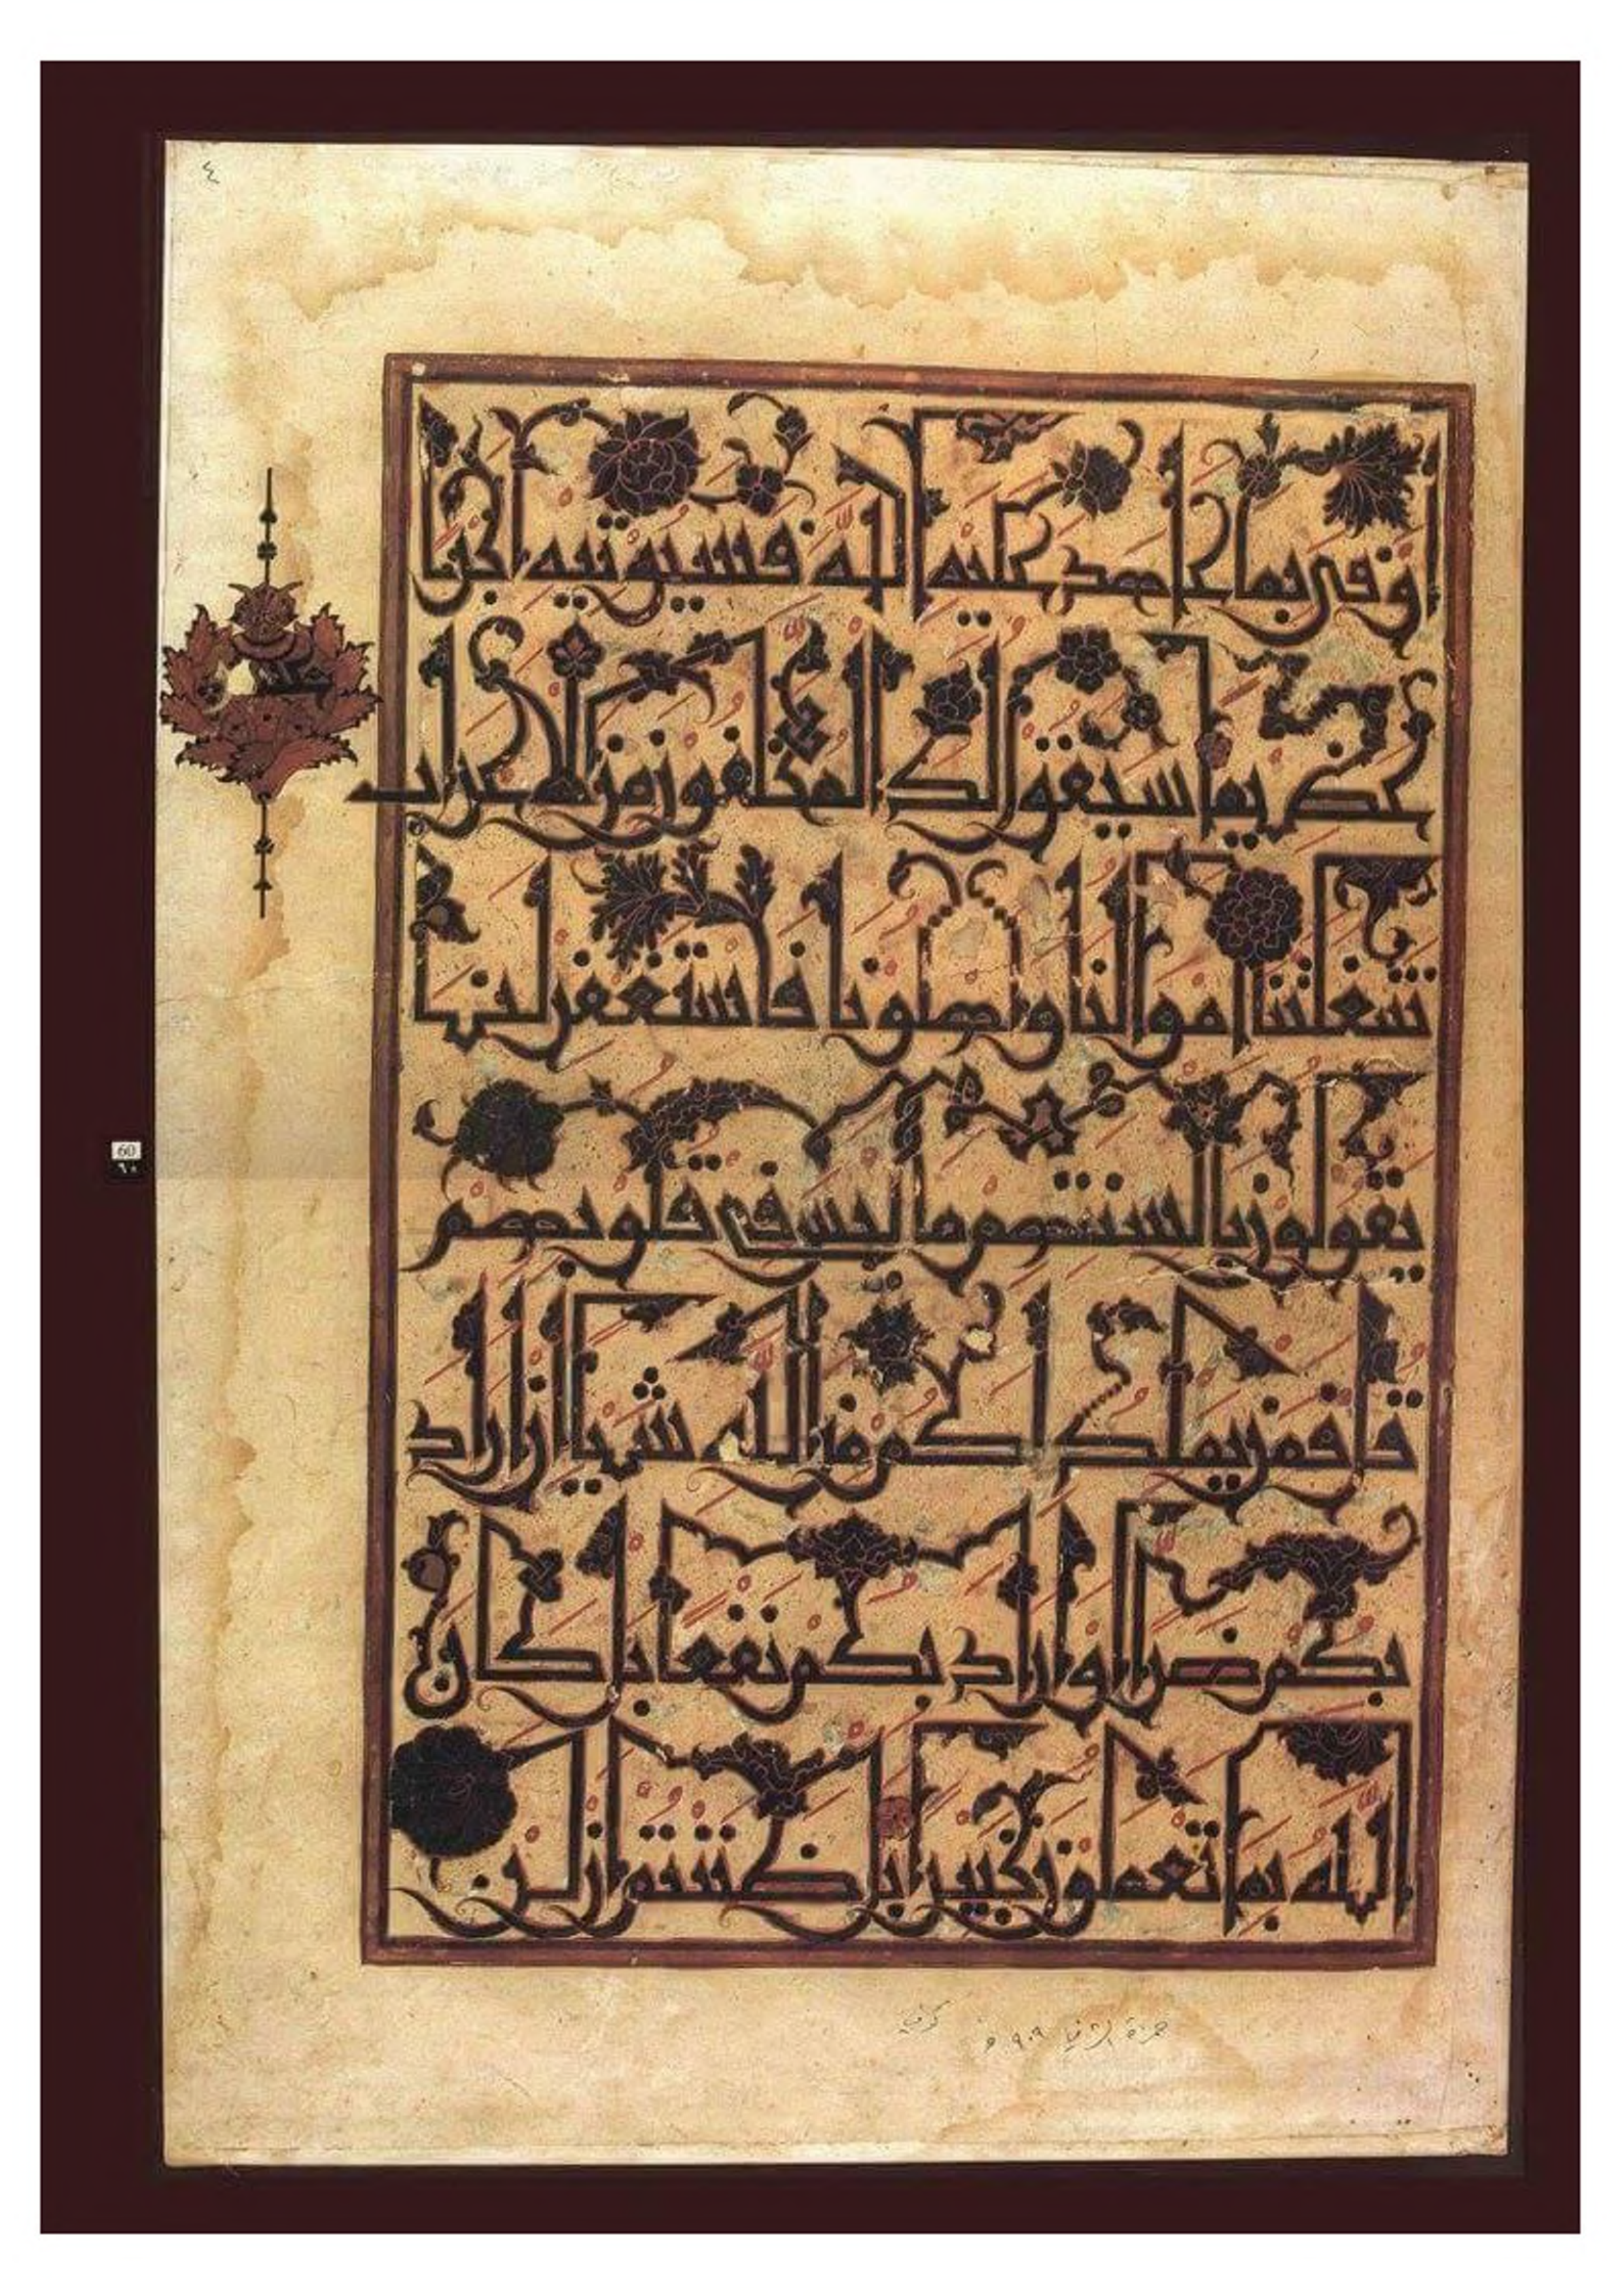 ٤
اوفى بما عاهد عليه الله فسيؤتيه اجرا
عظيما سيقول لك المخلفون من الاعراب
شغلتنا اموالنا واهلونا فاستغفر لنا
يقولون بالسنتهم ما ليس في قلوبهم
قل فمن يملك لكم من الله شيئا ان اراد
بكم ضرا او اراد بكم نفعا بل كان
الله بما تعملون خبيرا بل ظننتم ان لن
60
٦٠